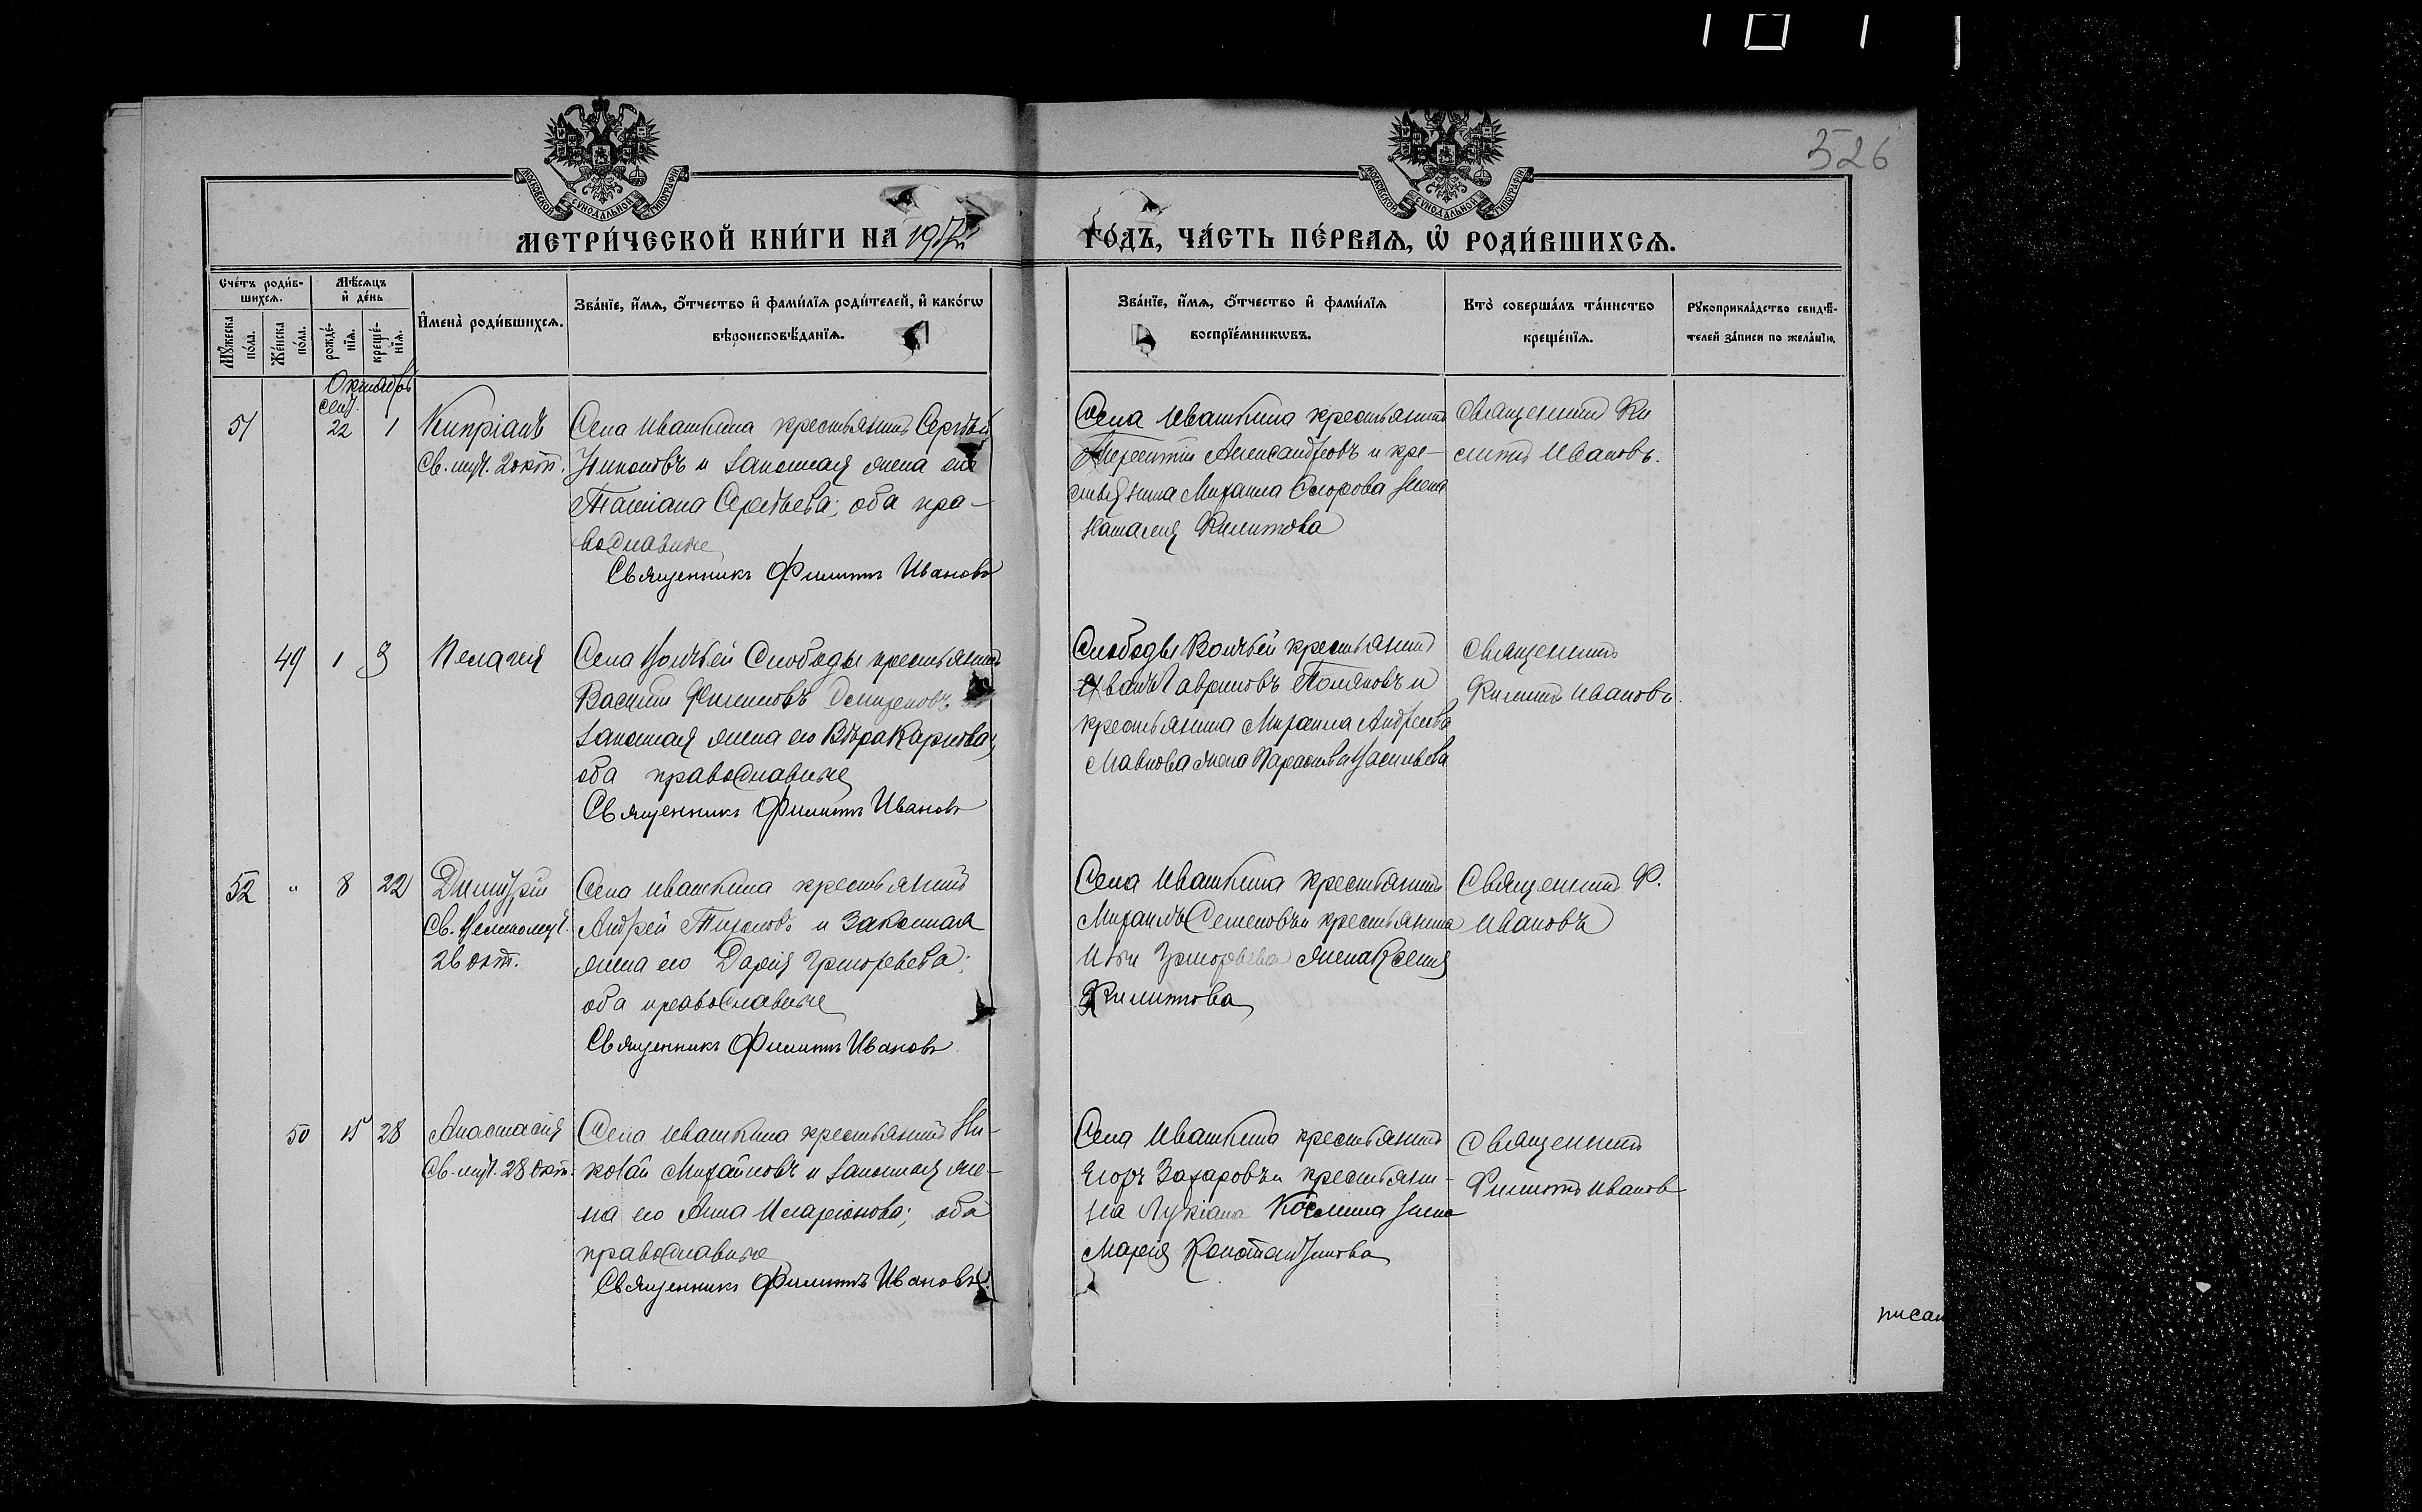 326
МОСКОВСКОЙ СѴНОДАЛЬНОЙ ТИПОГРАФІИ
МОСКОВСКОЙ СѴНОДАЛЬНОЙ ТИПОГРАФІИ
МЕТРИ́ЧЕСКОЙ КНИ́ГИ НА
ГО́ДЪ, ЧА́СТЬ ПЕ́РВАѦ, Ѽ РОДИ́ВШИХСѦ.
Сче́тъ роди́в-
шихсѧ.
Мꙋжеска по́ла.
Же́нска по́ла.
Мѣ́сѧцъ и҆ де́нь
рожде́-
нїѧ.
креще́-
нїѧ.
И҆мена̀ роди́вшихсѧ.
Зва́нїе, и҆́мѧ, ѻ҆́тчество и҆ фами́лїѧ роди́телей, и҆ како́гѡ
вѣроисповѣ́данїѧ.
Зва́нїе, и҆́мѧ, ѻ҆́тчество и҆ фами́лїѧ
воспрїе́мникѡвъ.
Кто̀ соверша́лъ та́инство
креще́нїѧ.
Рꙋкоприкла́дство свидѣ́-
телей за́писи по жела́нїю.
Октябрь
сент.
51 22 1
Кипріанъ
Св. муч. 2 окт.
Села Ивашкина крестьянинъ Сергѣй
и законная жена его
Татіана Сергѣева; оба пра-
вославные
Священникъ Филиппъ Ивановъ
Села Ивашкина крестьянинъ
Терентій Александровъ и кре-
стьянина Михаила жена
Наталія Филиппова
Священникъ Фи
липпъ Ивановъ.
49 1 3
Пелагія
Села Волчьей Слободы крестьянинъ
Василій
законная жена его Вѣра Карпова;
оба православные
Священникъ Филиппъ Ивановъ
Слободы Волчьей крестьянинъ
Иванъ Гавриловъ Поляковъ и
крестьянина Михаила Андреева
жена Параскева Васильева
Священникъ
Филиппъ Ивановъ.
52 " 8 22
Димитрій
Св. Великомуч.
26 окт.
Села Ивашкина крестьянинъ
Андрей Тихоновъ и законная
жена его Дарія Григорьева;
оба православные
Священникъ Филиппъ Ивановъ
Села Ивашкина крестьянинъ
Михаилъ Семеновъ и крестьянина
Ильи Григорьева жена Ксенія
Филиппова
Священникъ Ф.
Ивановъ
50 15 28
Анастасія
Св. муч. 28 окт.
Села Ивашкина крестьянинъ Ни-
колай Михайловъ и законная же-
на его Анна Иларіонова; оба
православные
Священникъ Филиппъ Ивановъ.
Села Ивашкина крестьянинъ
Егоръ Захаровъ и крестьяни-
на Лукіана Косьмина жена
Марія Константинова
Священникъ
Филиппъ Ивановъ
писан